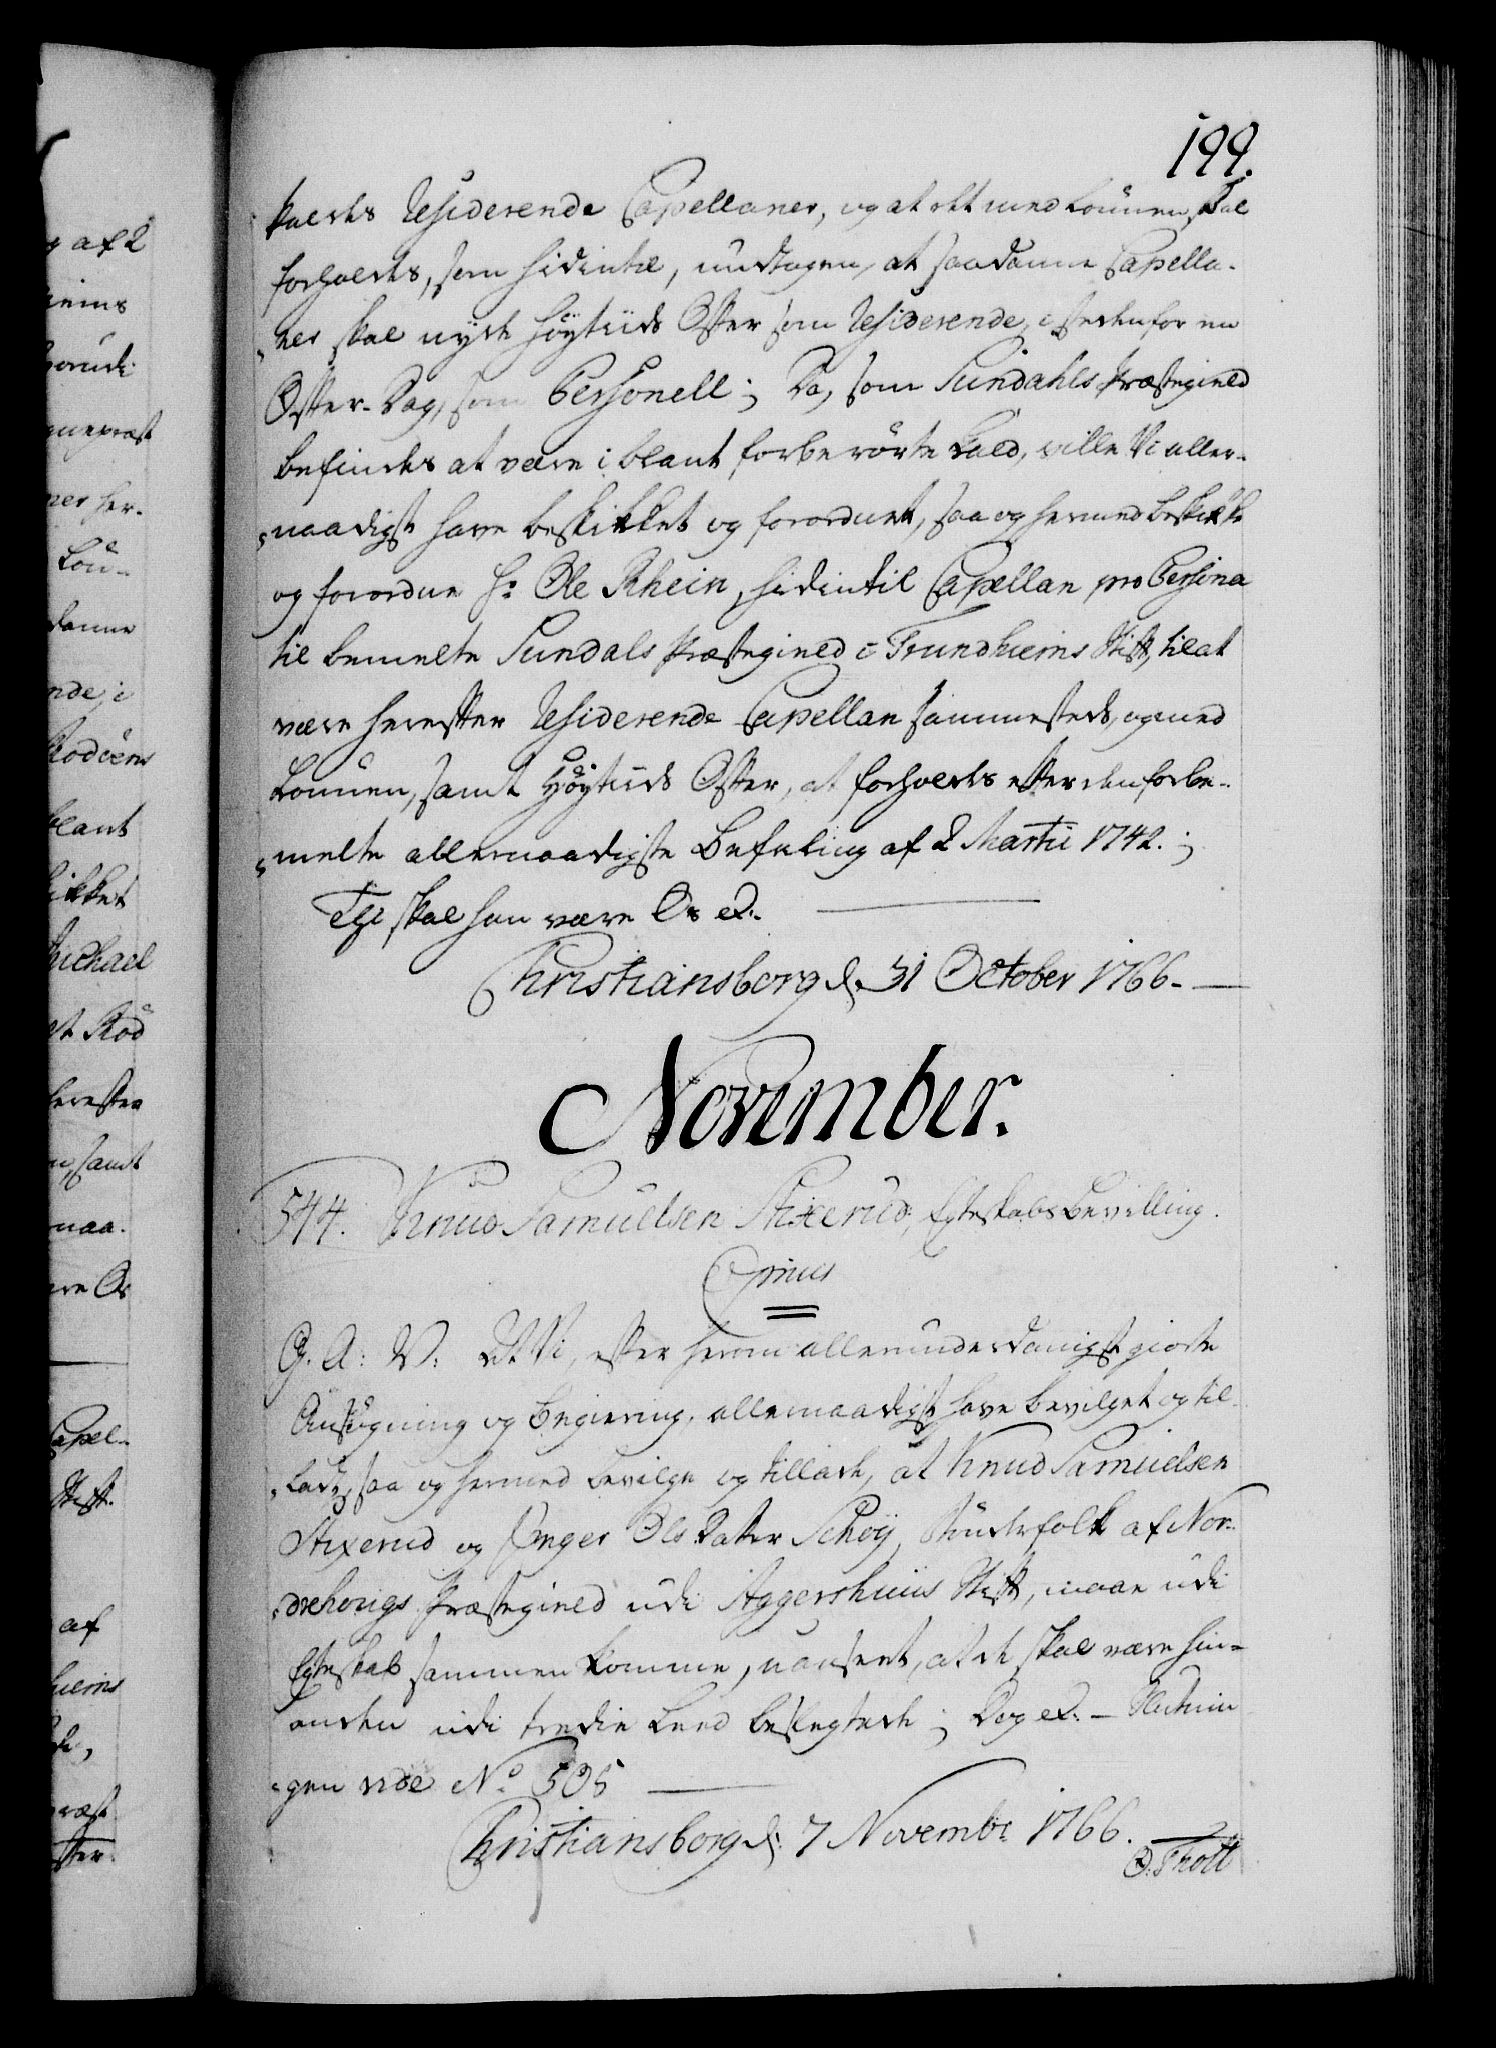 199.
kaldes Residerende Capellaner, og at det med Lønnen skal
forholdes, som hidindtil, undtagen, at saadanne Capella-
ner skal nyde Høytiids Offer som Residerende, i stedenfor en
Offer-Dag, som Personell; Da, som Sundahls Præstegield
befindes at være iblant forberørte Kald, ville Vi aller-
naadigst have beskikket og forordnet, saa og hermed beskikke
og forordne Hr Ole Rhein, hidindtil Capellan pro Persona
til bemelte Sundals Præstegield i Trundhiems Stift, til at
være herefter Residerende Capellan sammesteds, og med
Lønnen, samt Høytiids Offer, at forholdes efter den forbe-
melte allernaadigste Befaling af 2 Martii 1742.;
Thi skal han være Os &c.
Christiansborg d. 31 October 1766.
November.
544. Knud Samuelsen Stixerud, Egteskabs Bevilling.
Gratis
G. A: V: At Vi, efter herom allerunderdanigst giorte
Ansøgning og Begiering, allernaadigst have bevilget og til-
ladt, saa og hermed bevilge og tillade, at Knud Samuelsen
Stixerud og Inger Ols Datter Schøy, Bønderfolk af Nor-
drehougs Præstegield udi Aggershuus Stift, maae udi
Egteskab sammen komme, uanseet, at de skal være hin-
anden udi tredie Leed beslegtede; Dog &c. - Slutnin-
gen vide No 505
Christiansborg d: 7 Novembr 1766.
O. Thott